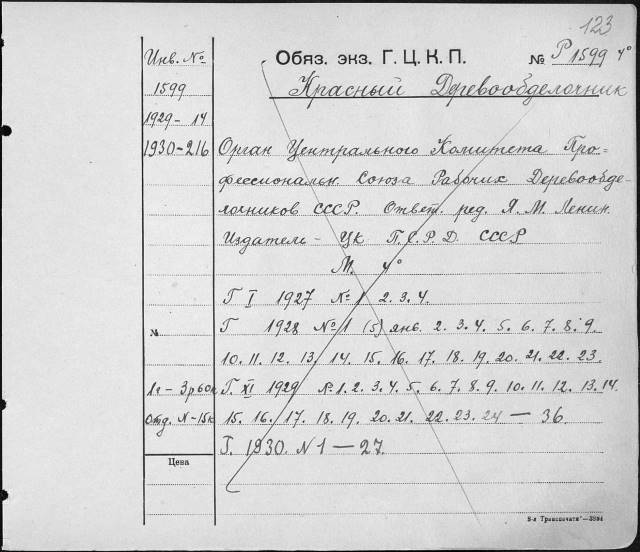 123
Инв. №
Обяз. экз. Г. Ц. К. П.
№ Р 1599 4°
1599
Красный Деревообделочник
1929 - 14
1930 - 216
Орган Центрального Комитета Про=
фессиональн. Союза Рабочих Деревообде-
лочников СССР. Ответ. ред. Я. М. Ленин.
Издатель - ЦК П.С.Р.Д. СССР
М. 4°
Г I 1927 № 1 2. 3. 4.
№
Г 1928 № 1 (5) янв. 2. 3. 4. 5. 6. 7. 8. 9.
10. 11. 12. 13. 14. 15. 16. 17. 18. 19. 20. 21. 22. 23.
1 г - 3 р 60 к
Г. XI 1929 № 1. 2. 3. 4. 5. 6. 7. 8. 9. 10. 11. 12. 13. 14.
Отд. N - 15 к
15. 16. 17. 18. 19. 20. 21. 22. 23. 24 — 36.
Г. 1930. N 1 — 27.
Цена
8-я Транспечати—3894